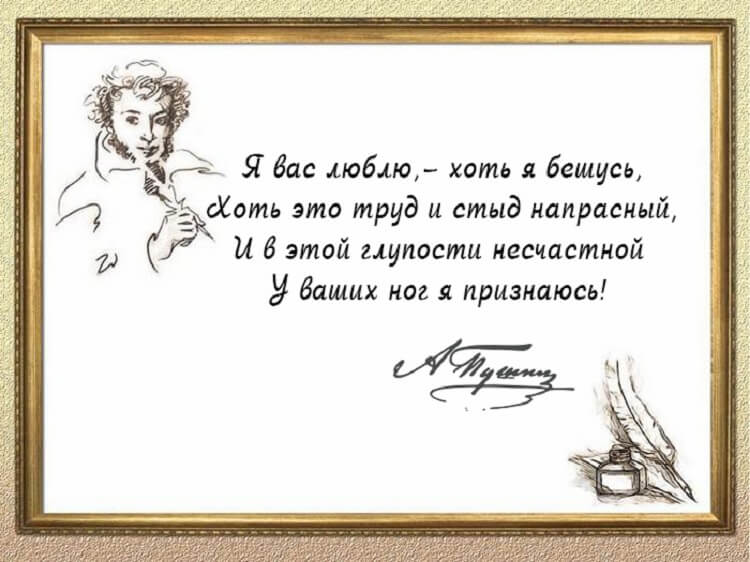 Я вас люблю,– хоть я бешусь,
Хоть это труд и стыд напрасный,
И в этой глупости несчастной
У ваших ног я признаюсь!
А Пушкин